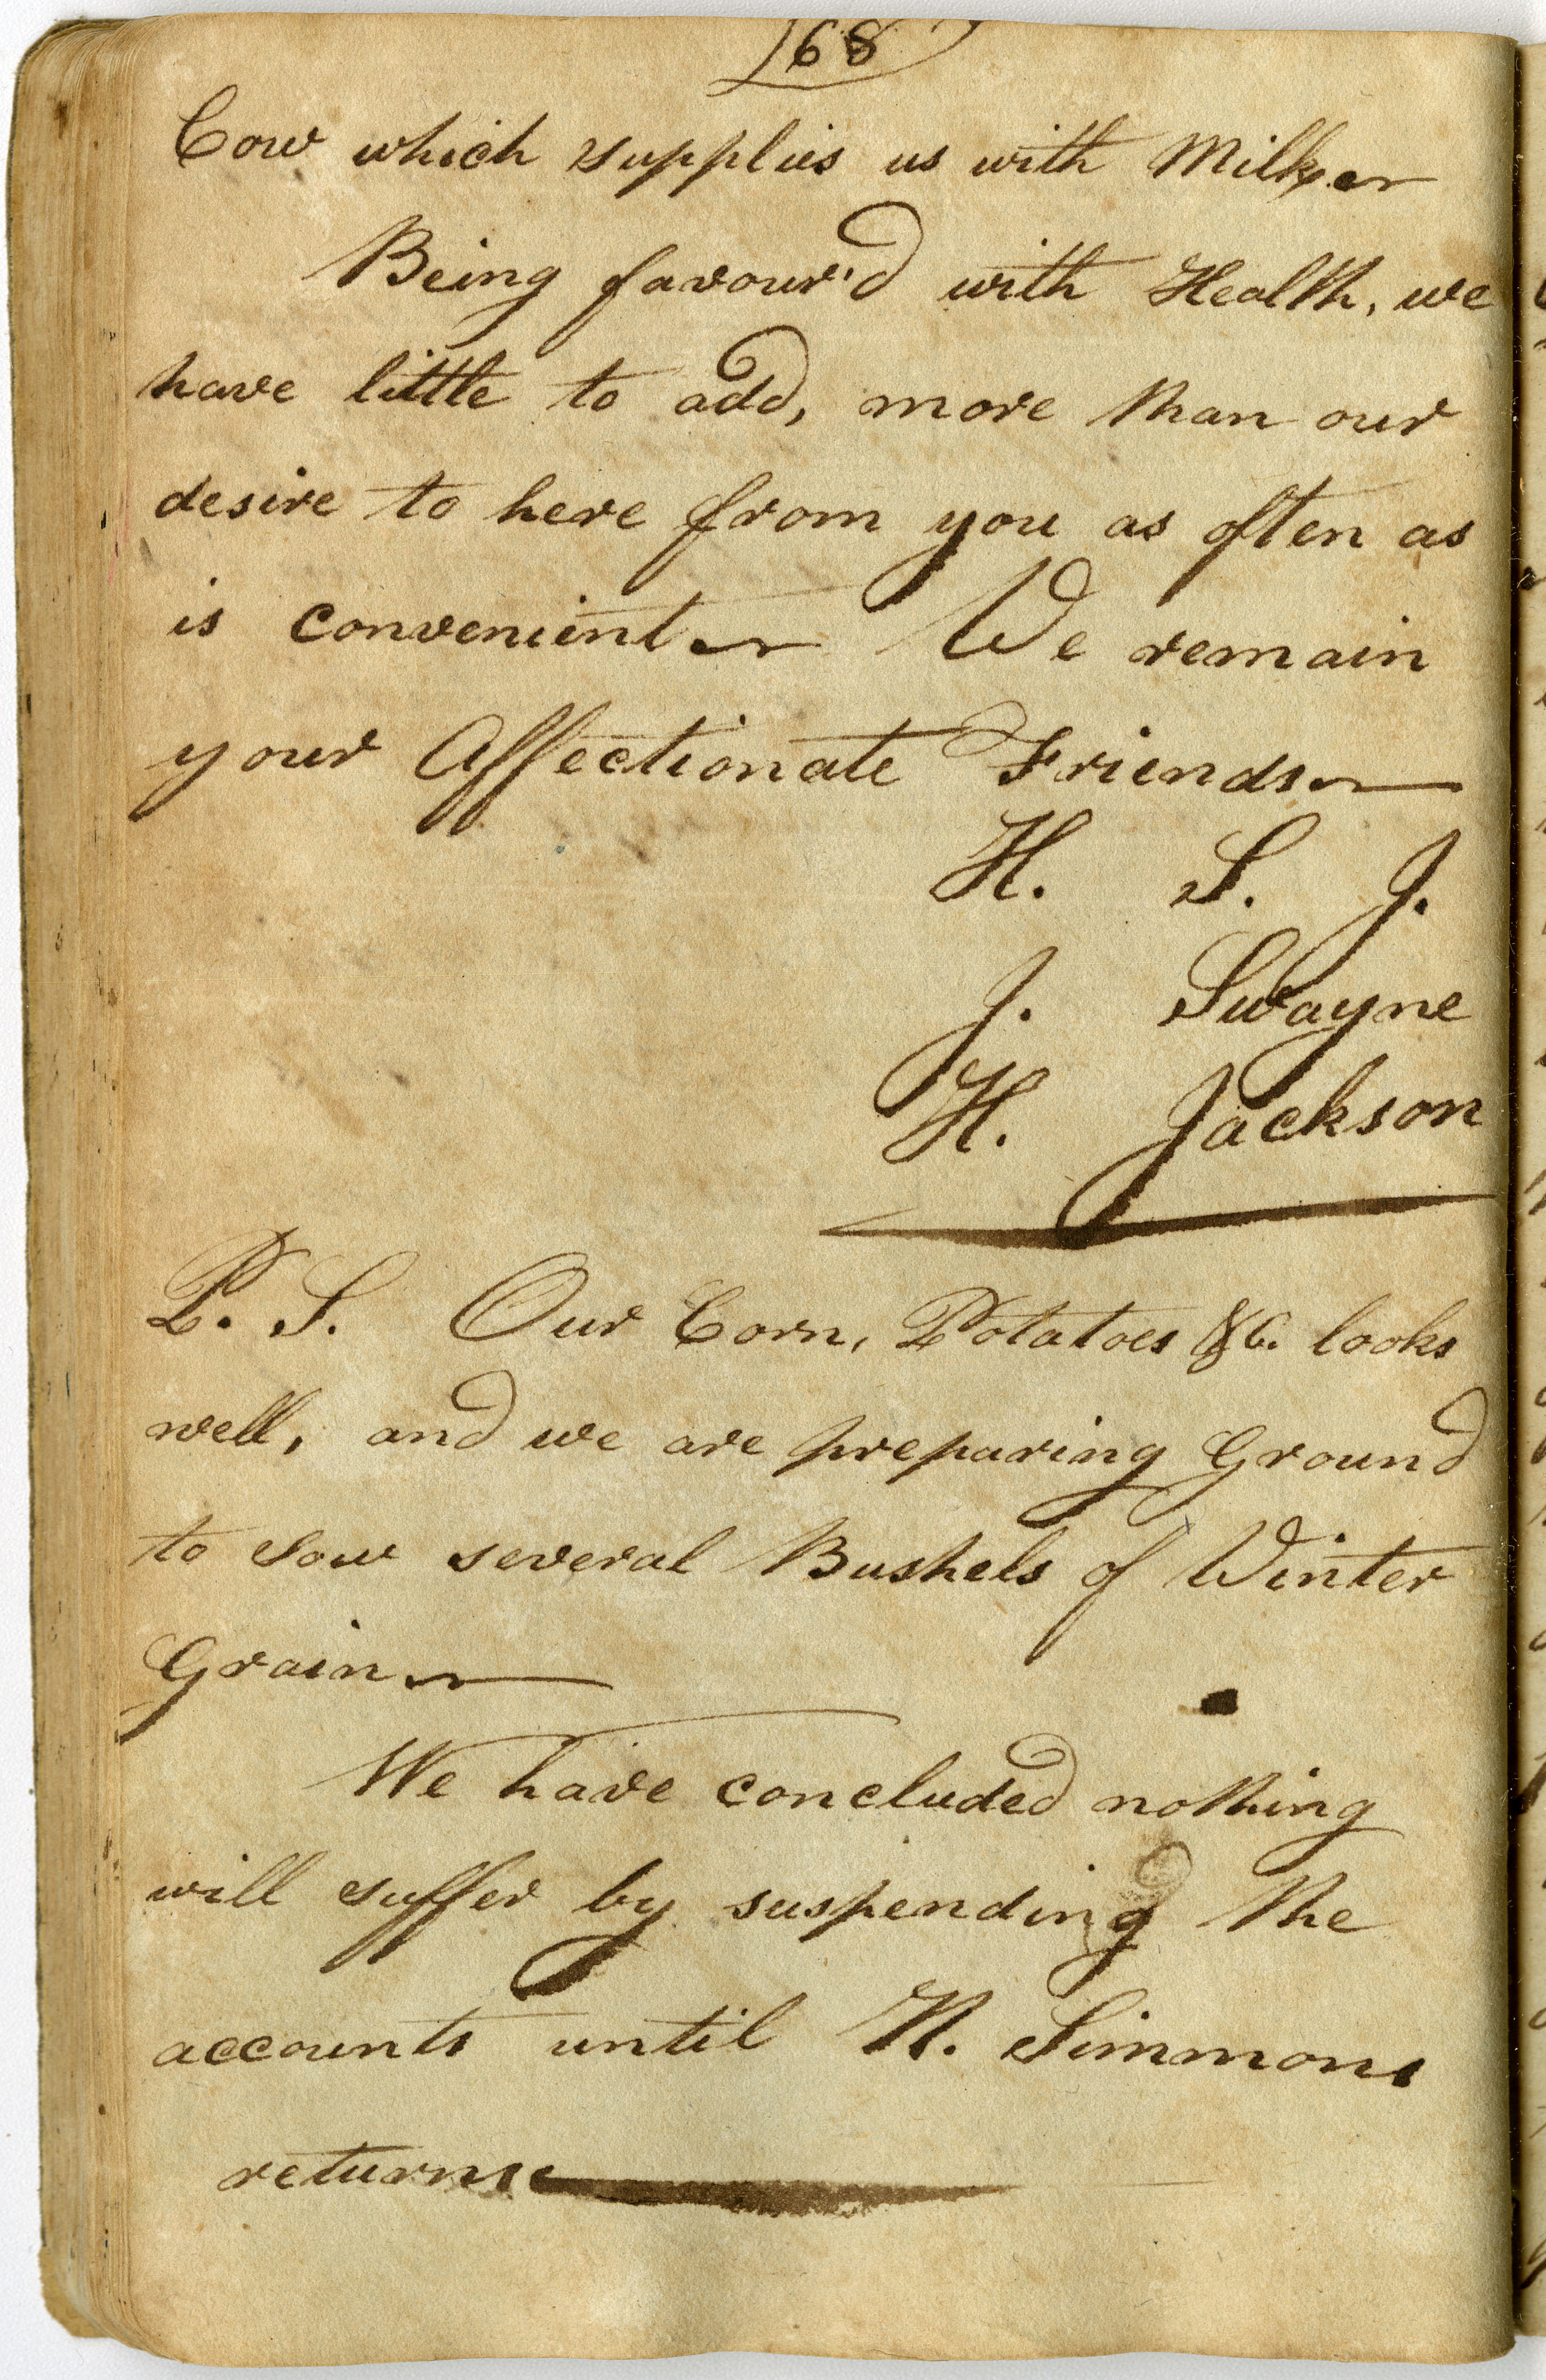 168
Cow which supplies us with Milk.
Being favour'd with Health, we
have little to add, more than our
desire to here from you as often as
is convenient We remain
your Affectionate Friends
H. S. J.
J. Swayne
H. Jackson
P. S. Our Corn, Potatoes &c. looks
well, and we are preparing Ground
to sow several Bushels of Winter
Grain
We have concluded nothing
will suffer by suspending the
accounts until N. Simmons
returns